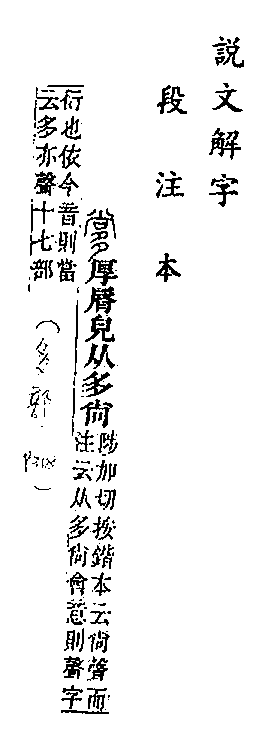 說文解字
段注本
厚脣皃从多尙
陟加切按鍇本云尙聲而
注云从多尙會意則聲字
衍也依今音則當
云多亦聲十七部
（多部
）